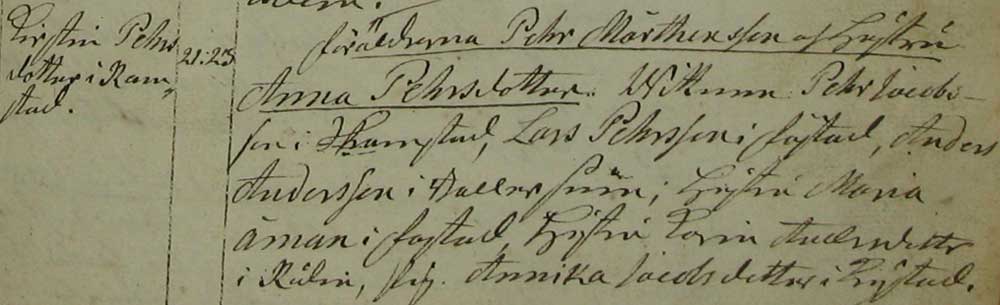 Kirstin Pehrs
dotter i Ram-
stad.
21. 23
föräldrarna Pehr Mårthensson och Hustru
Anna Pehrsdotter. Wittnen Pehr Jacobs-
son i Ramstad, Lars Pehrsson i fastad, Anders
Andersson i Hallersrüm; Hustru Maria
åman i fastad, Hustru Karin Andersdotter
i Rölin, pig. Annika Jacobsdotter i